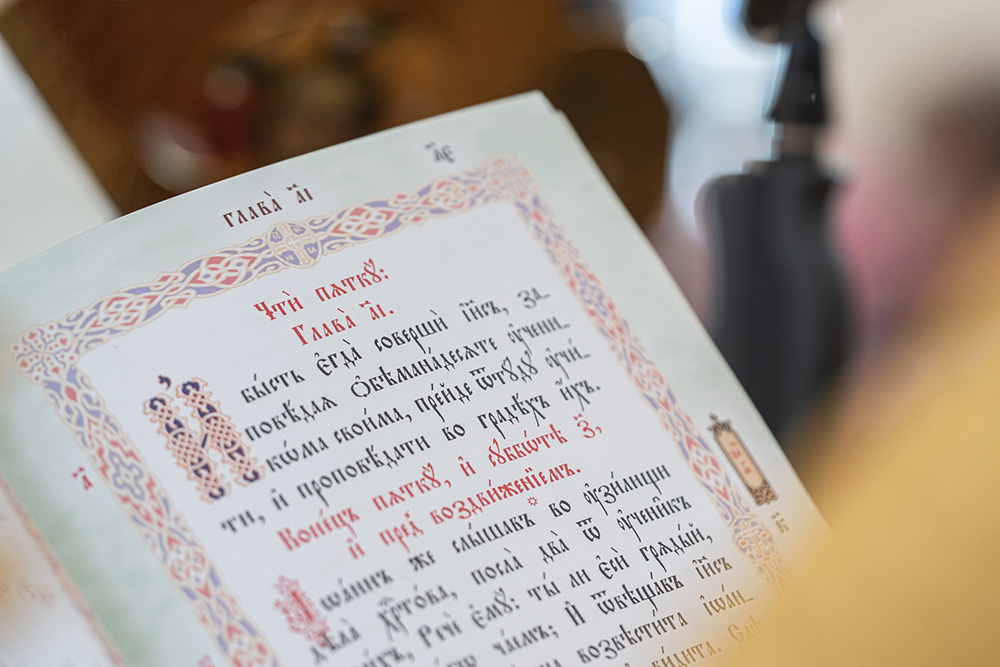 Глава̀ а҃і
Чтѝ пѧткꙋ̀:
Глава̀ а҃і.
И҆ бы́сть є҆гда̀ соверши̑ і҆и҃съ, за-
повѣ́даѧ ѻ҆бѣмана́десѧте ᲂу҆чени-
ко́ма свои́ма, пре́йде ѿтꙋ́дꙋ ᲂу҆чи́-
ти, и҆ проповѣ́дати во градѣ́хъ и҆́хъ.
Коне́цъ пѧткꙋ̀, и҆ сꙋббѡ́тѣ з҃,
и҆ пред̾ воздви́женїемъ.
І҆ѡа́ннъ же слы́шавъ во ᲂу҆зи́лищи
дѣла̀ хрⷭ҇то́ва, посла̀ два̀ ѿ ᲂу҆чени̑къ
Речѐ є҆мꙋ̀: ты́ ли є҆сѝ грѧды́й,
ча́емъ; И҆ ѿвѣща́въ і҆и҃съ
возвѣсти́та і҆ѡа́н-